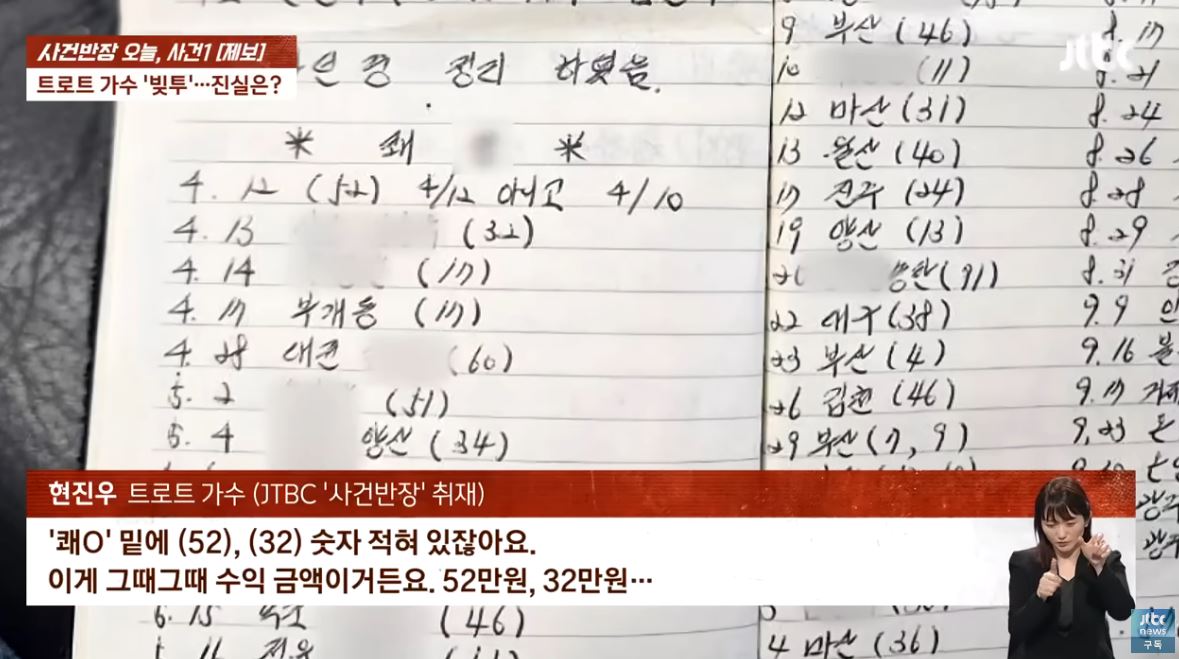 사건반장 오늘, 사건1 [제보]
트로트 가수 '빚투'…진실은?
jtbc
정리 하였음.
* 쾌 *
4. 12 (52) 4/12 아니고 4/10
4. 13 (32)
4. 14 (17)
4. 17 부개동 (17)
4. 28 대전 (60)
5. 2 (51)
5. 4 양산 (34)
9 부산 (46)
10 (11)
12 마산 (31)
13 울산 (40)
17 진주 (24)
19 양산 (13)
(91)
22 대구 (38)
23 부산 (4)
26 김천 (46)
29 부산 (7, 9)
8. 17
8. 21
8. 24
8. 26
8. 28
8. 29
8. 31
9. 9
9. 16
9. 17
9. 23
현진우 트로트 가수 (JTBC '사건반장' 취재)
'쾌O' 밑에 (52), (32) 숫자 적혀 있잖아요.
이게 그때그때 수익 금액이거든요. 52만원, 32만원…
6. 15 (46)
4 마산 (36)
광주
광주
jtbc
news
구독